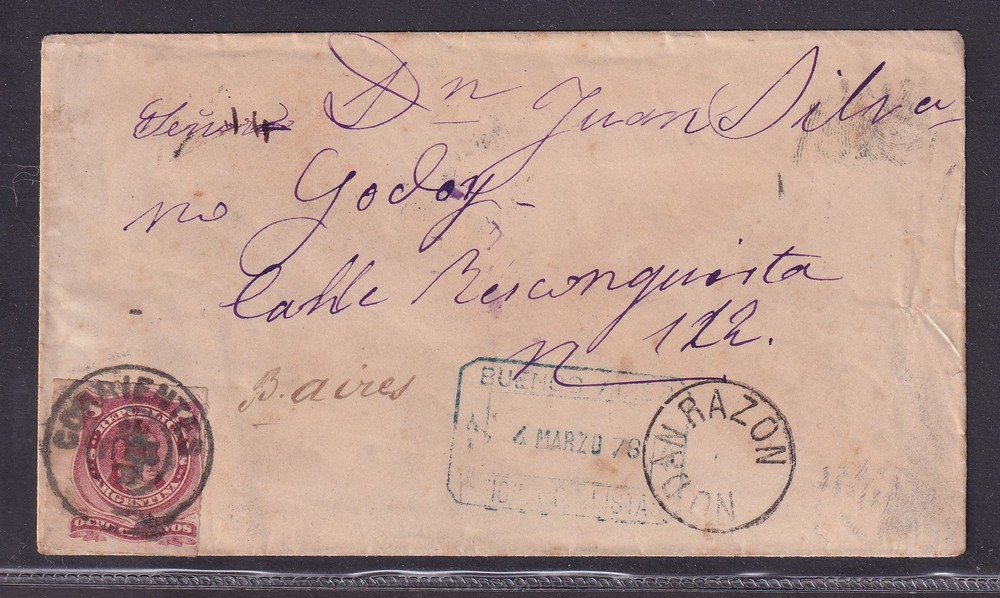 Señor Dn Juan Silva
no Godoy
Calle Resconquista
N 122.
B. aires
CORRIENTES
REPUBLICA
ARGENTINA
OCHO CENTAVOS
BUENOS AIRES
4 MARZO 78
NO DAN RAZON